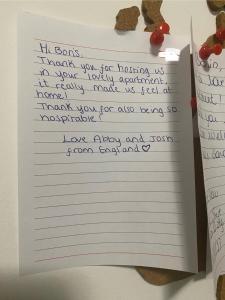 Hi Bon's.
Thank you for hosting us
in your lovely apartment,
it really made us feel at
home!
Thank you for also being so
hospitable!
Love Abby and Josh
from England ♡